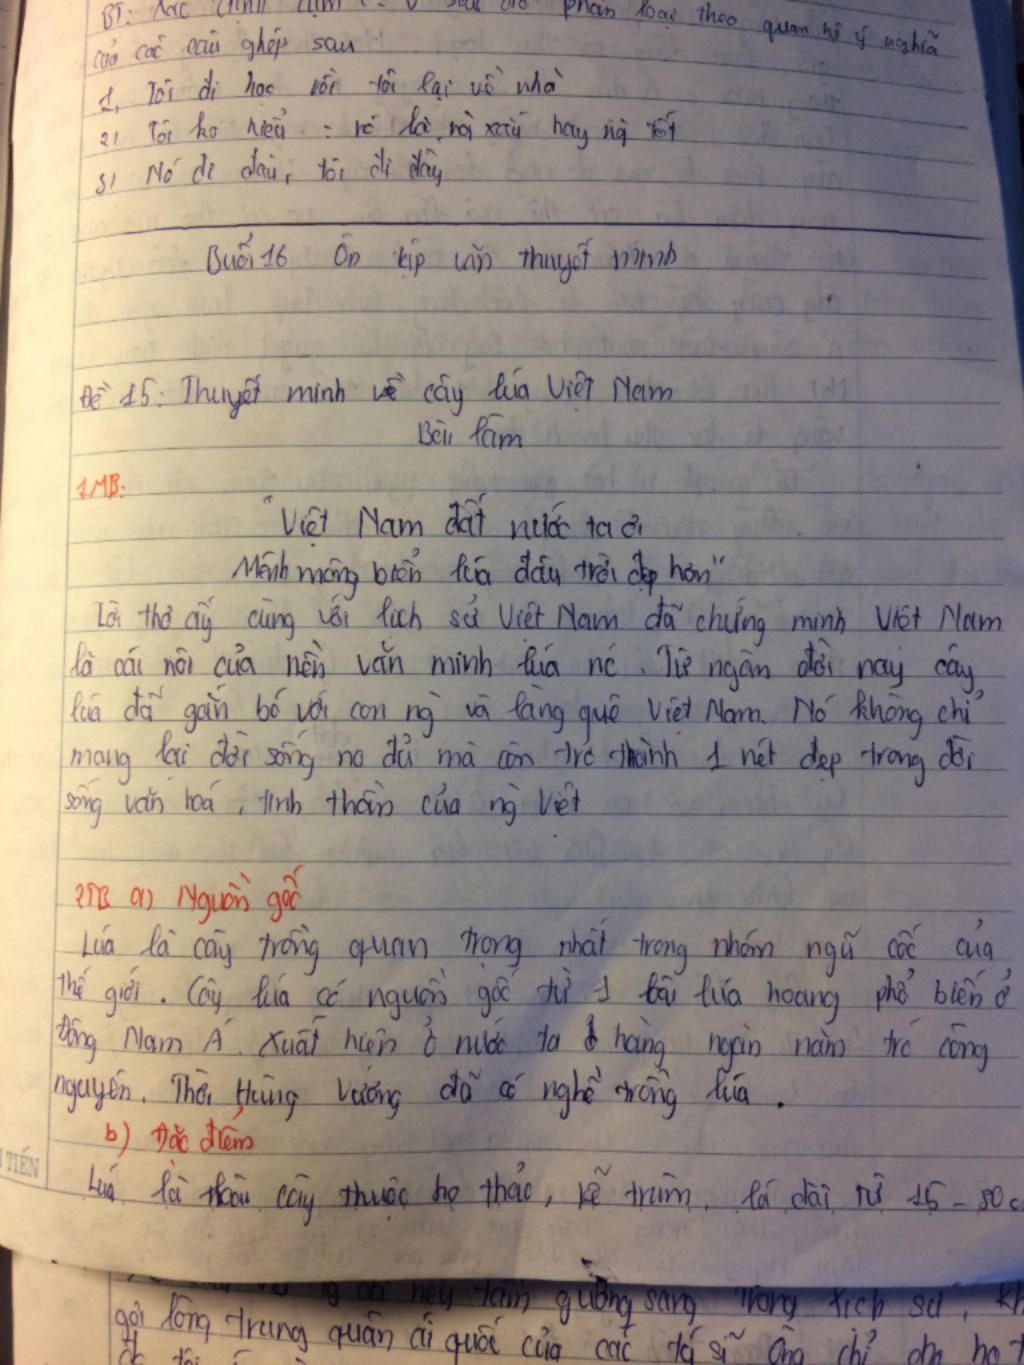 BT: Xác định cụm C-V sau đó phân loại theo quan hệ ý nghĩa
của các câu ghép sau
1, Tôi đi học rồi tôi lại về nhà
2, Tôi ko hiểu : rõ là xấu hay tốt
3, Nó đi đâu, tôi đi đấy
Buổi 16 Ôn tập văn thuyết minh
Đề 15: Thuyết minh về cây lúa Việt Nam
Bài làm
1MB:
"Việt Nam đất nước ta ơi
Mênh mông biển lúa đâu trời đẹp hơn"
Lời thơ ấy cùng với lịch sử Việt Nam đã chứng minh Việt Nam
là cái nôi của nền văn minh lúa nc. Từ ngàn đời nay cây
lúa đã gắn bó với con ng và làng quê Việt Nam. Nó không chỉ
mang lại đời sống no đủ mà còn trở thành 1 nét đẹp trong đời
sống văn hoá, tinh thần của ng Việt
2TB a) Nguồn gốc
Lúa là cây trồng quan trọng nhất trong nhóm ngũ cốc của
thế giới. Cây lúa có nguồn gốc từ 1 loài lúa hoang phổ biến ở
Đông Nam Á. Xuất hiện ở nước ta hàng ngàn năm trc công
nguyên. Thời Hùng Vương đã có nghề trồng lúa.
b) Đặc điểm
Lúa là thân cây thuộc họ thảo, rễ trùm, lá dài từ 15 - 50c
TIẾN
tấm gương sáng trong lịch sử,
gọi lòng trung quân ái quốc của các tá sĩ